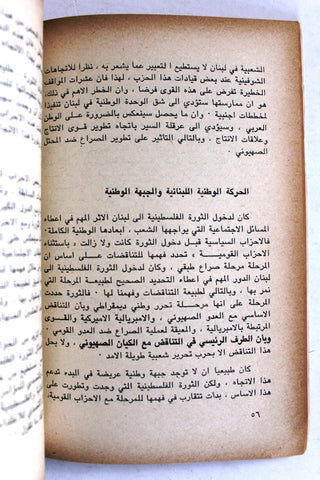 الشعبية في لبنان لا يستطيع التعبير عما يشعر به ، نظرا لاتجاهات
الشوفينية عند بعض قيادات هذا الحزب ، لهذا فان عشرات المواقف
الخطيرة تفرض على هذه القوى فرضا ، وان الخطر الاهم في ذلك،
هو ان ممارستها ستؤدي الى شق الوحدة الوطنية في لبنان تنفيذا
لمخططات اجنبية ، وان ما يحصل سينعكس بالضرورة على الوطن
العربي ، وسيؤدي الى عرقلة السير باتجاه تطوير قوى الانتاج
وعلاقات الانتاج ، وبالتالي التأثير على تطوير الصراع ضد المحتل
الصهيوني .
الحركة الوطنية اللبنانية والجبهة الوطنية
كان لدخول الثورة الفلسطينية الى لبنان الاثر المهم في اعطاء
المسائل الاجتماعية التي يواجهها الشعب ، ابعادها الوطنية الكاملة٠
فالاحزاب السياسية قبل دخول الثورة كانت ولا زالت « باستثناء
الاحزاب القوميـــة » تحدد فهمها للتناقضات على اساس ان
المرحلة مرحلة صراع طبقي ، وكان لدخول الثورة الفلسطينية الى
لبنان الدور المهم في اعطاء التحديد الصحيح لطبيعة المرحلة التي
نمر بها ، وبالتالي لطبيعة التناقضات وفهمنا لها . فالثورة حددت
المرحلة على انها مرحلة تحرر وطني ديمقراطي وبان التناقض
الاساسي مع العدو الصهيوني ، والامبريالية الاميركية والقوى
المرتبطة بالامبريالية ، والمعيقة لعملية الصراع ضد العدو القومي
وبان الطرف الرئيسي في التناقض مع الكيان الصهيوني ، ولا يحل
هذا التناقض الا بحرب تحرير شعبية طويلة الامد .
كان طبيعيا ان لا توجد جبهة وطنية عريضة في البدء تدعم
هذا الاتجاه ، ولكن الثورة الفلسطينية التي وجدت وتطورت على
هذا الاساس ، بدات تتقارب في فهمها للمرحلة مع الاحزاب القومية،
٥٦